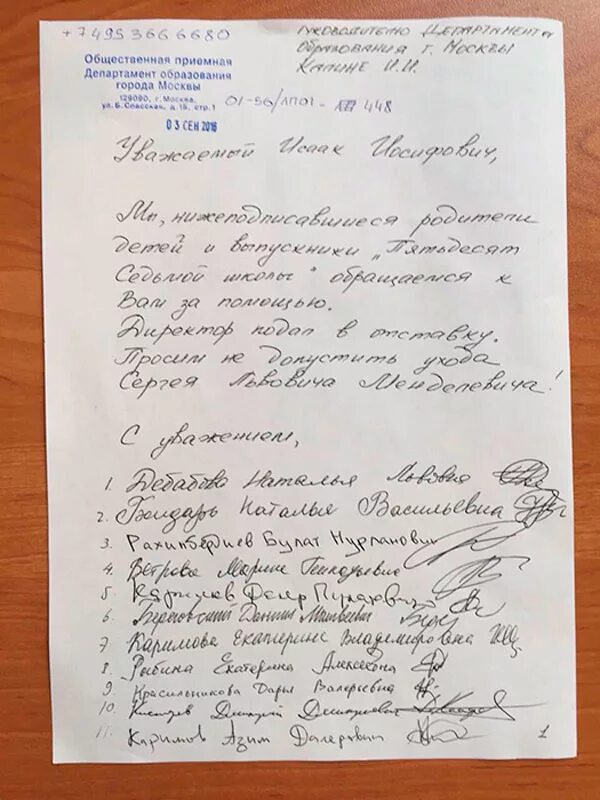 +7 495 366 6680
Руководителю Департамента
образования г. Москвы
Калине И.И.
Общественная приемная
Департамент образования
города Москвы
129090, г. Москва,
ул. Б. Спасская, д. 15, стр. 1
01-56/ЛП01- 448
03 СЕН 2016
Уважаемый Исаак Иосифович,
Мы, нижеподписавшиеся родители
детей и выпускники „Пятьдесят
Седьмой школы" обращаемся к
Вам за помощью.
Директор подал в отставку.
Просим не допустить ухода
Сергея Львовича Менделевича!
С уважением,
1. Дебабова Наталья Львовна
2. Бондарь Наталья Васильевна
3. Рахимбердиев Булат Нурланович
4. Ветрова Марина Геннадьевна
5. Каримов Далер Пулатович
6. Береговский Даниил Матвеевич
7. Каримова Екатерина Владимировна
8. Рыбина Екатерина Алексеевна
9. Красильникова Дарья Валерьевна
10. Дмитрий Дмитриевич
11. Каримов Азим Далерович
1